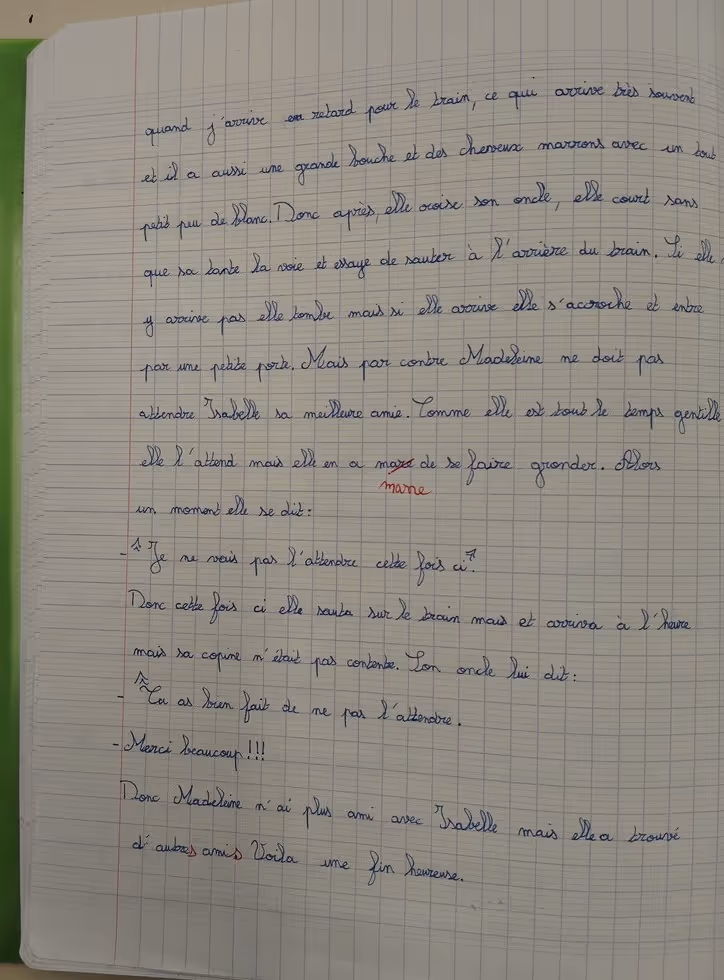 quand j'arrive en retard pour le train, ce qui arrive très souvent
et il a aussi une grande bouche et des cheveux marrons avec un tout
petit peu de blanc. Donc après, elle croise son oncle, elle court sans
que sa tante la voie et essaye de sauter à l'arrière du train. Si elle
y arrive pas elle tombe mais si elle arrive elle s'accroche et entre
par une petite porte. Mais par contre Madeleine ne doit pas
attendre Isabelle sa meilleure amie. Comme elle est tout le temps gentille
elle l'attend mais elle en a mare de se faire gronder. Alors
marre
un moment elle se dit:
- Je ne vais pas l'attendre cette fois ci.
Donc cette fois ci elle sauta sur le train mais et arriva à l'heure
mais sa copine n'était pas contente. Son oncle lui dit:
- Tu as bien fait de ne pas l'attendre.
- Merci beaucoup!!!
Donc Madeleine n'ai plus ami avec Isabelle mais elle a trouvé
d'autres amis Voila une fin heureuse.